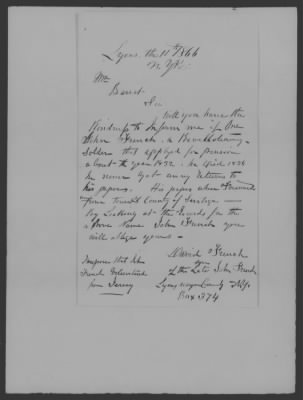 Lyons, the 11th 1866
N. Y.
Mr
Barret
Sir
Will you have the
Kindness to inform me if One
John French, a Revolutionary
Soldier that applyed for a pension
about the year 1832. he died 1838
he never Got any Returns to
his papers. His papers when
From County of Saratoga
by Looking at the Records for the
above Name John French you
will oblige yours
David French
Son
of the Late John French
Lyons Wayne County N.Y.
Box 374
Suppose that John
French Volunteered
from Jersey